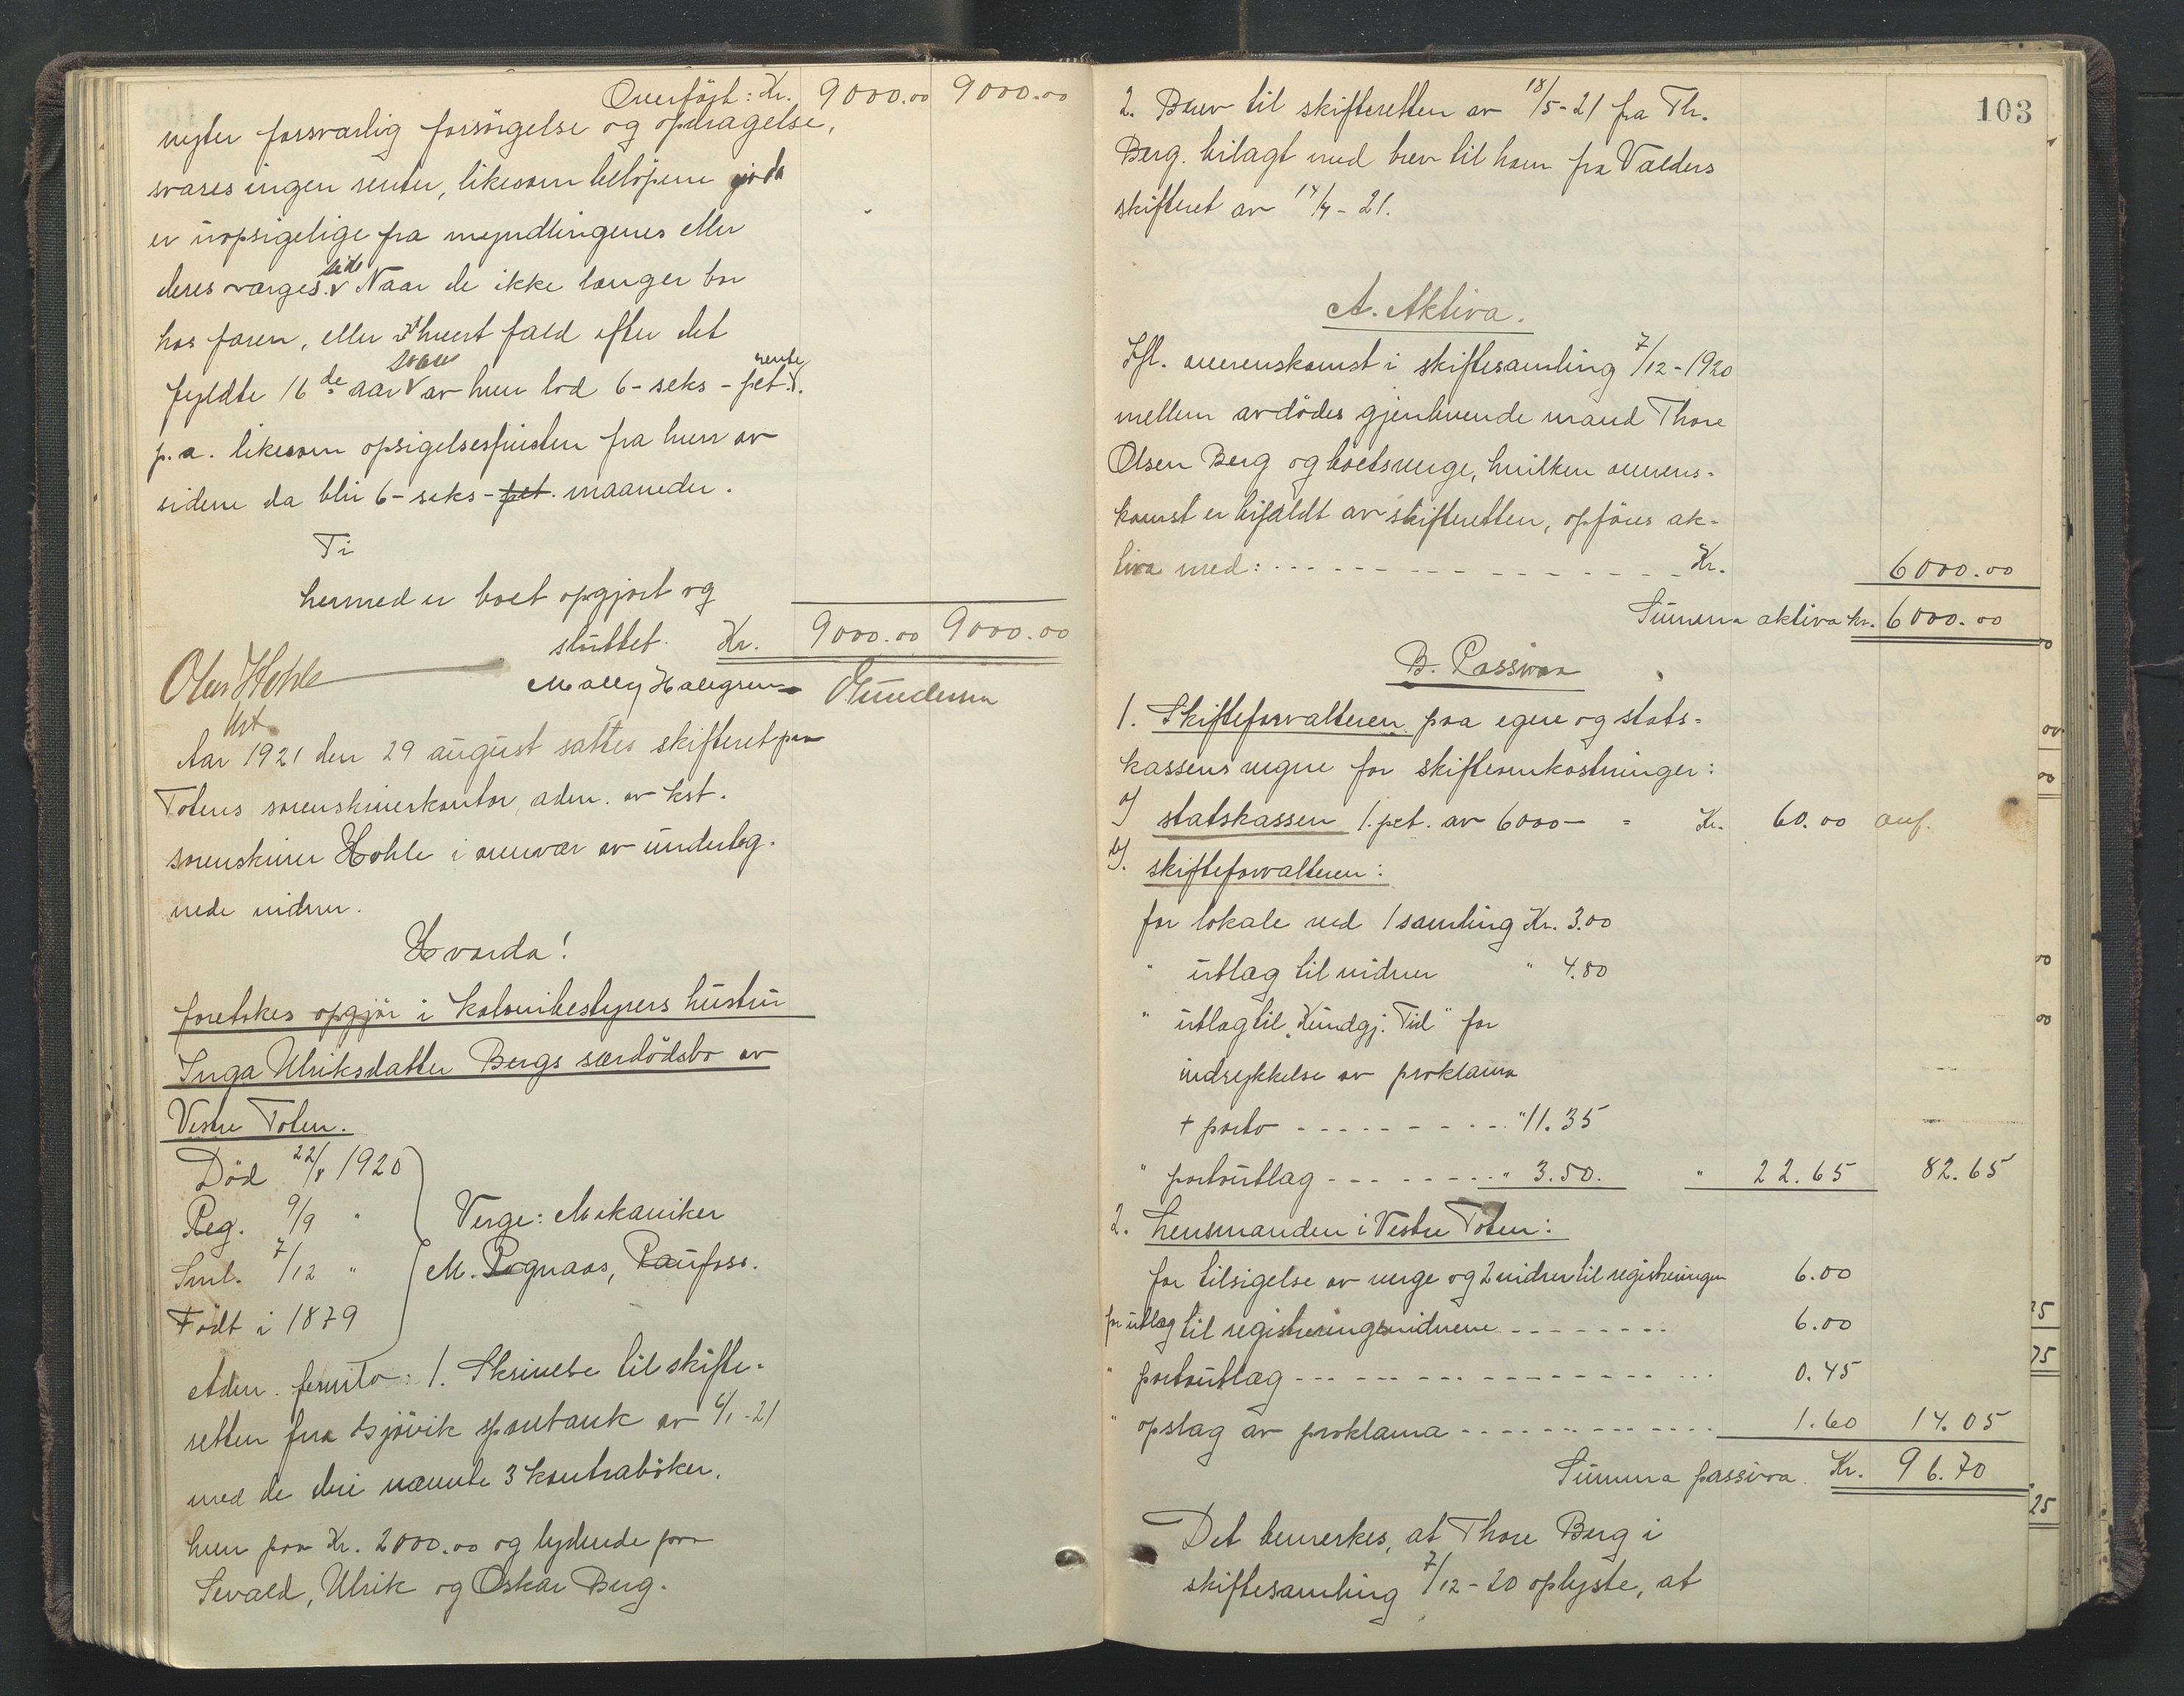 Overført: Kr. 9000.00 9000.00
nyter forsvarlig forsørgelse og opdragelse,
svares ingen renter, likesom beløpene da
er uopsigelige fra myndlingenes eller
deres værges side. Naar de ikke længer bor
hos faren, eller i hvert fald efter det
fyldte 16de aar svares av hver lod 6 - seks - pct. rente
p.a. likesom opsigelsesfristen fra hver av
sidene da blir 6 - seks - pct. maaneder.
Ti
hermed er boet opgjort og
sluttet. Kr. 9000.00 9000.00
Olav Hohle
kst.
Mally Hallgren Gundersen
Aar 1921 den 29 august sattes skifteret paa
Totens sorenskriverkontor, adm. av kst.
sorenskriver Hohle i overvær av underteg-
nede vidner.
Hvorda!
foretokes opgjør i kolonibestyrers hustru
Inga Ulriksdatter Bergs særdødsbo av
Vestre Toten.
Død 22/8 1920
Reg. 9/9 "
Verge: Mekaniker
Sml. 7/12 "
M. Rognaas, Raufoss.
Født i 1879
Adm. fremla: 1. Skrivelse til skifte-
retten fra Gjøvik sparebank av 6/1-21
med de deri nævnte 3 kontrabøker,
hver paa Kr. 2000.00 og lydende paa
Sevald, Ulrik og Oskar Berg.
103
2. Brev til skifteretten av 18/5-21 fra Th.
Berg. bilagt med brev til ham fra Valdres
skifteret av 14/4-21.
A. Aktiva.
Ifl. overenskomst i skiftesamling 7/12-1920
mellem avdødes gjenlevende mand Thore
Olsen Berg og boets verge, hvilken overens-
komst er bifaldt av skifteretten, opføres ak-
tiva med: Kr. 6000.00
Summa aktiva kr. 6000.00
B. Passiva
1. Skifteforvalteren paa egne og stats-
kassens vegne for skifteomkostninger:
a) statskassen 1. pct. av 6000 - = Kr. 60.00 anf.
b). skifteforvalteren:
for lokale ved 1 samling Kr. 3.00
" utlæg til vidner " 4.80
" utlæg til "Kundgj. Tid" for
indrykkelse av proklama
+ porto " 11.35
" portoutlæg " 3.50. " 22.65 82.65
2. Lensmanden i Vestre Toten:
for tilsigelse av verge og 2 vidner til registreringen 6.00
for utlæg til registreringsvidnene 6.00
" portoutlæg 0.45
" opslag av proklama 1.60 14.05
Summa passiva Kr. 96.70
Det bemerkes, at Thore Berg i
skiftesamling 7/12-20 oplyste, at